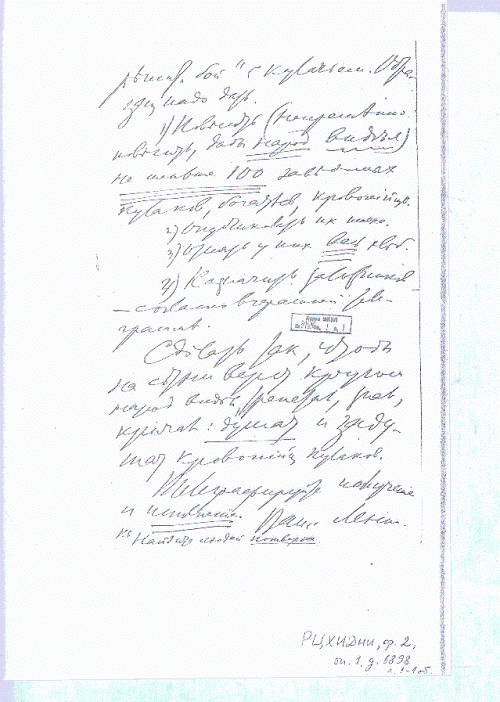 решит. бой" с кулачьем. Обра-
зец надо дать.
1) Повесить (непременно
повесить, дабы народ видел)
не меньше 100 заведомых
кулаков, богатеев, кровопийцев.
2) Опубликовать их имена.
3) Отнять у них весь хлеб.
4) Назначить заложников
— согласно вчерашней теле-
грамме.
Сделать так, чтобы
на сотни верст кругом
народ видел, трепетал, знал,
кричал: душат и заду-
шат кровопийц кулаков.
Телеграфируйте получение
и исполнение. Ваш Ленин.
P.S. Найдите людей потверже.
РЦХИДНИ, ф. 2,
оп. 1, д. 6898
л. 1-1об.